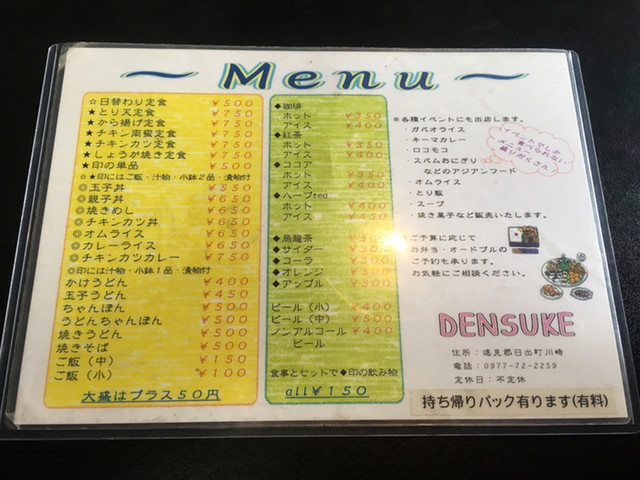 ～ Menu ～
☆日替わり定食 ￥500
★とり天定食 ￥750
★から揚げ定食 ￥750
★チキン南蛮定食 ￥750
★チキンカツ定食 ￥750
★しょうが焼き定食 ￥750
★印の単品 ￥500
☆★印にはご飯・汁物・小鉢２品・漬物付
◎玉子丼 ￥550
◎親子丼 ￥650
◎焼きめし ￥650
◎チキンカツ丼 ￥650
◎オムライス ￥650
◎カレーライス ￥650
◎チキンカツカレー ￥750
◎印には汁物・小鉢１品・漬物付
かけうどん ￥400
玉子うどん ￥450
ちゃんぽん ￥500
うどんちゃんぽん ￥500
焼きうどん ￥500
焼きそば ￥500
ご飯（中） ￥150
ご飯（小） ￥100
大盛はプラス５０円
◆珈琲
ホット ￥350
アイス ￥400
◆紅茶
ホット ￥350
アイス ￥400
◆ココア
ホット ￥350
アイス ￥400
◆ハーブtea
ホット ￥400
アイス ￥450
◆烏龍茶 ￥300
◆サイダー ￥300
◆コーラ ￥300
◆オレンジ ￥300
◆アップル ￥300
ビール（小） ￥400
ビール（中） ￥500
ノンアルコール ￥400
ビール
食事とセットで◆印の飲み物
all￥150
※各種イベントにも出店します。
・ガパオライス
・キーマカレー
・ロコモコ
・スパムおにぎり
などのアジアンフード
・オムライス
・とり飯
・スープ
・焼き菓子など販売いたします。
イベントでしか
食べられない
メニューが
たくさん
ご予算に応じて
お弁当・オードブルの
ご予約も承ります。
お気軽にご相談ください。
DENSUKE
住所：速見郡日出町川崎
電話：0977-72-2259
定休日：不定休
持ち帰りパック有ります(有料)